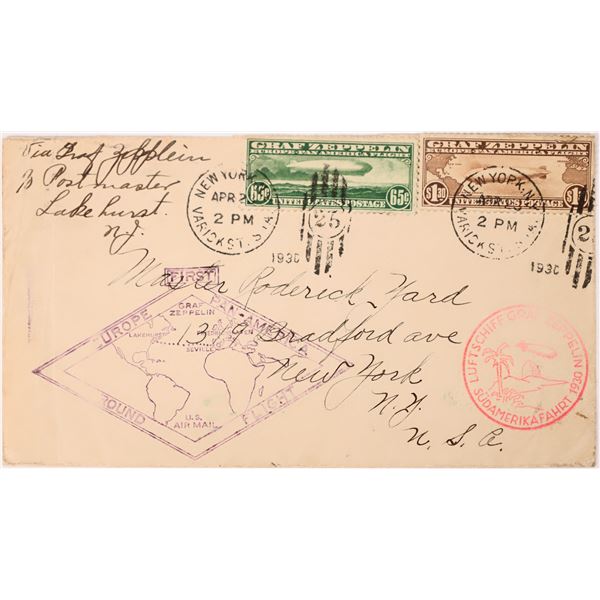 Via Graf Zepplein
% Postmaster
Lakehurst.
N.J.
GRAF ZEPPELIN
EUROPE-PAN AMERICA FLIGHT
65¢ 65¢
UNITED STATES POSTAGE
GRAF ZEPPELIN
EUROPE-PAN AMERICA FLIGHT
$1.30
UNITED STATES POSTAGE
NEW YORK,
APR 2
2 PM
VARICK ST. STA.
25
1930
NEW YORK, N
2 PM
VARICK ST. STA.
2
1930
Master Roderick Yard
Bradford ave
New York
N.Y.
U.S.A.
FIRST
EUROPE PAN-AMERICA
GRAF
ZEPPELIN
LAKEHURST
SEVILLE
U.S.
AIR MAIL
ROUND FLIGHT
LUFTSCHIFF GRAF ZEPPELIN
SÜDAMERIKAFAHRT 1930